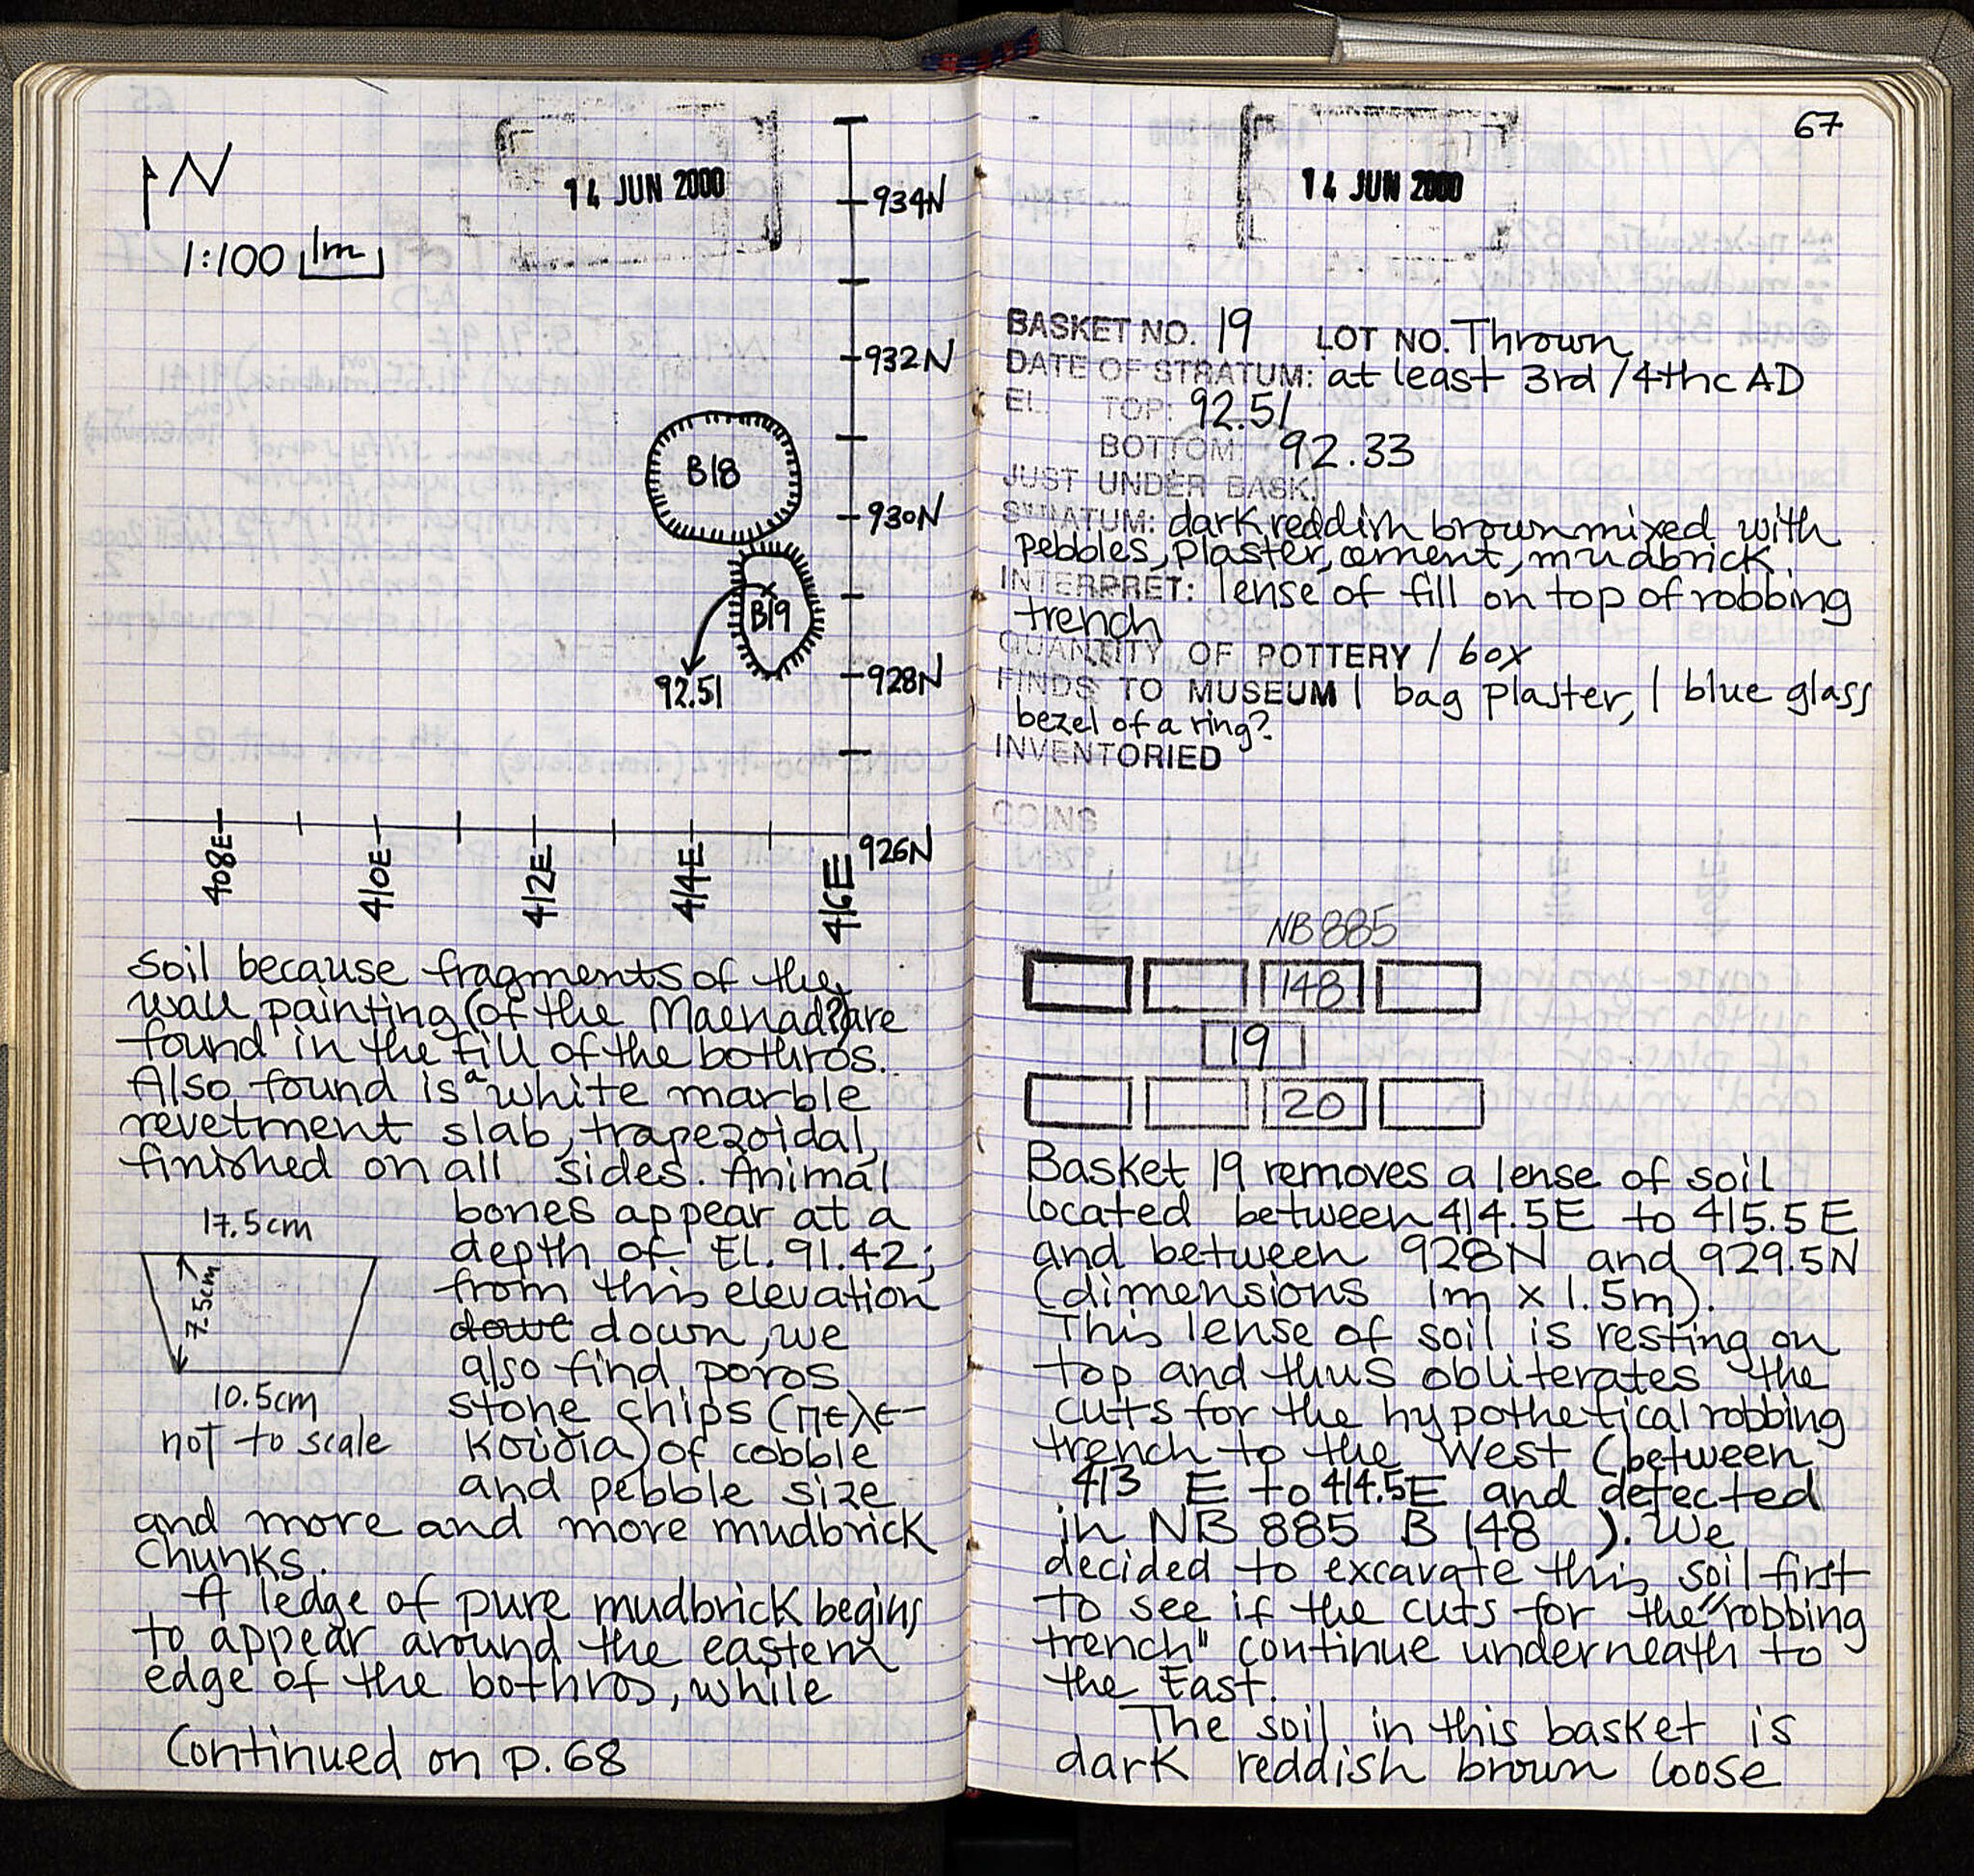 N
1:100 1m
14 JUN 2000
934N
932N
B18
930N
B19
928N
92.51
926N
408E
410E
412E
414E
416E
soil because fragments of the
wall painting (of the Maenad?) are
found in the fill of the bothros.
Also found is a white marble
revetment slab, trapezoidal,
finished on all sides. Animal
bones appear at a
depth of El. 91.42;
from this elevation
dowe down, we
also find poros
stone chips (πελε-
κούδια) of cobble
and pebble size
17.5cm
7.5cm
10.5cm
not to scale
and more and more mudbrick
chunks.
A ledge of pure mudbrick begins
to appear around the eastern
edge of the bothros, while
Continued on p. 68
67
14 JUN 2000
BASKET NO. 19 LOT NO. Thrown
DATE OF STRATUM: at least 3rd/4thc AD
EL. TOP: 92.51
BOTTOM: 92.33
JUST UNDER BASK.
STRATUM: dark reddish brown mixed with
pebbles, plaster, cement, mudbrick.
INTERPRET: lense of fill on top of robbing
trench
QUANTITY OF POTTERY 1 box
FINDS TO MUSEUM 1 bag plaster, 1 blue glass
bezel of a ring?
INVENTORIED
COINS
NB 885
148
19
20
Basket 19 removes a lense of soil
located between 414.5E to 415.5E
and between 928N and 929.5N
(dimensions 1m x 1.5m).
This lense of soil is resting on
top and thus obliterates the
cuts for the hypothetical robbing
trench to the West (between
413 E to 414.5E and detected
in NB 885 B 148 ). We
decided to excavate this soil first
to see if the cuts for the "robbing
trench" continue underneath to
the East.
The soil in this basket is
dark reddish brown loose